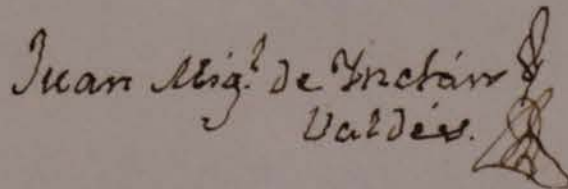 Juan Mig.l de Ynclán
Valdés.